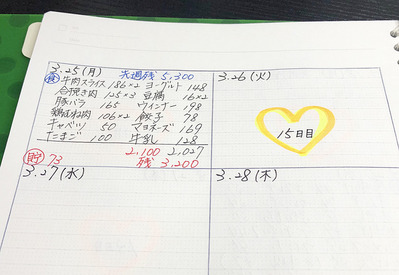 3.25(月) 先週残 5,300
食 牛肉スライス 186×2 ヨーグルト 148
合挽き肉 125×3 豆腐 16×2
豚バラ 165 ウィンナー 198
鶏むね肉 106×2 餃子 78
キャベツ 50 マヨネーズ 169
たまご 100 牛乳 128
2,100 2,027
貯 73 残 3,200
3.26(火)
15日目
3.27(水)
3.28(木)